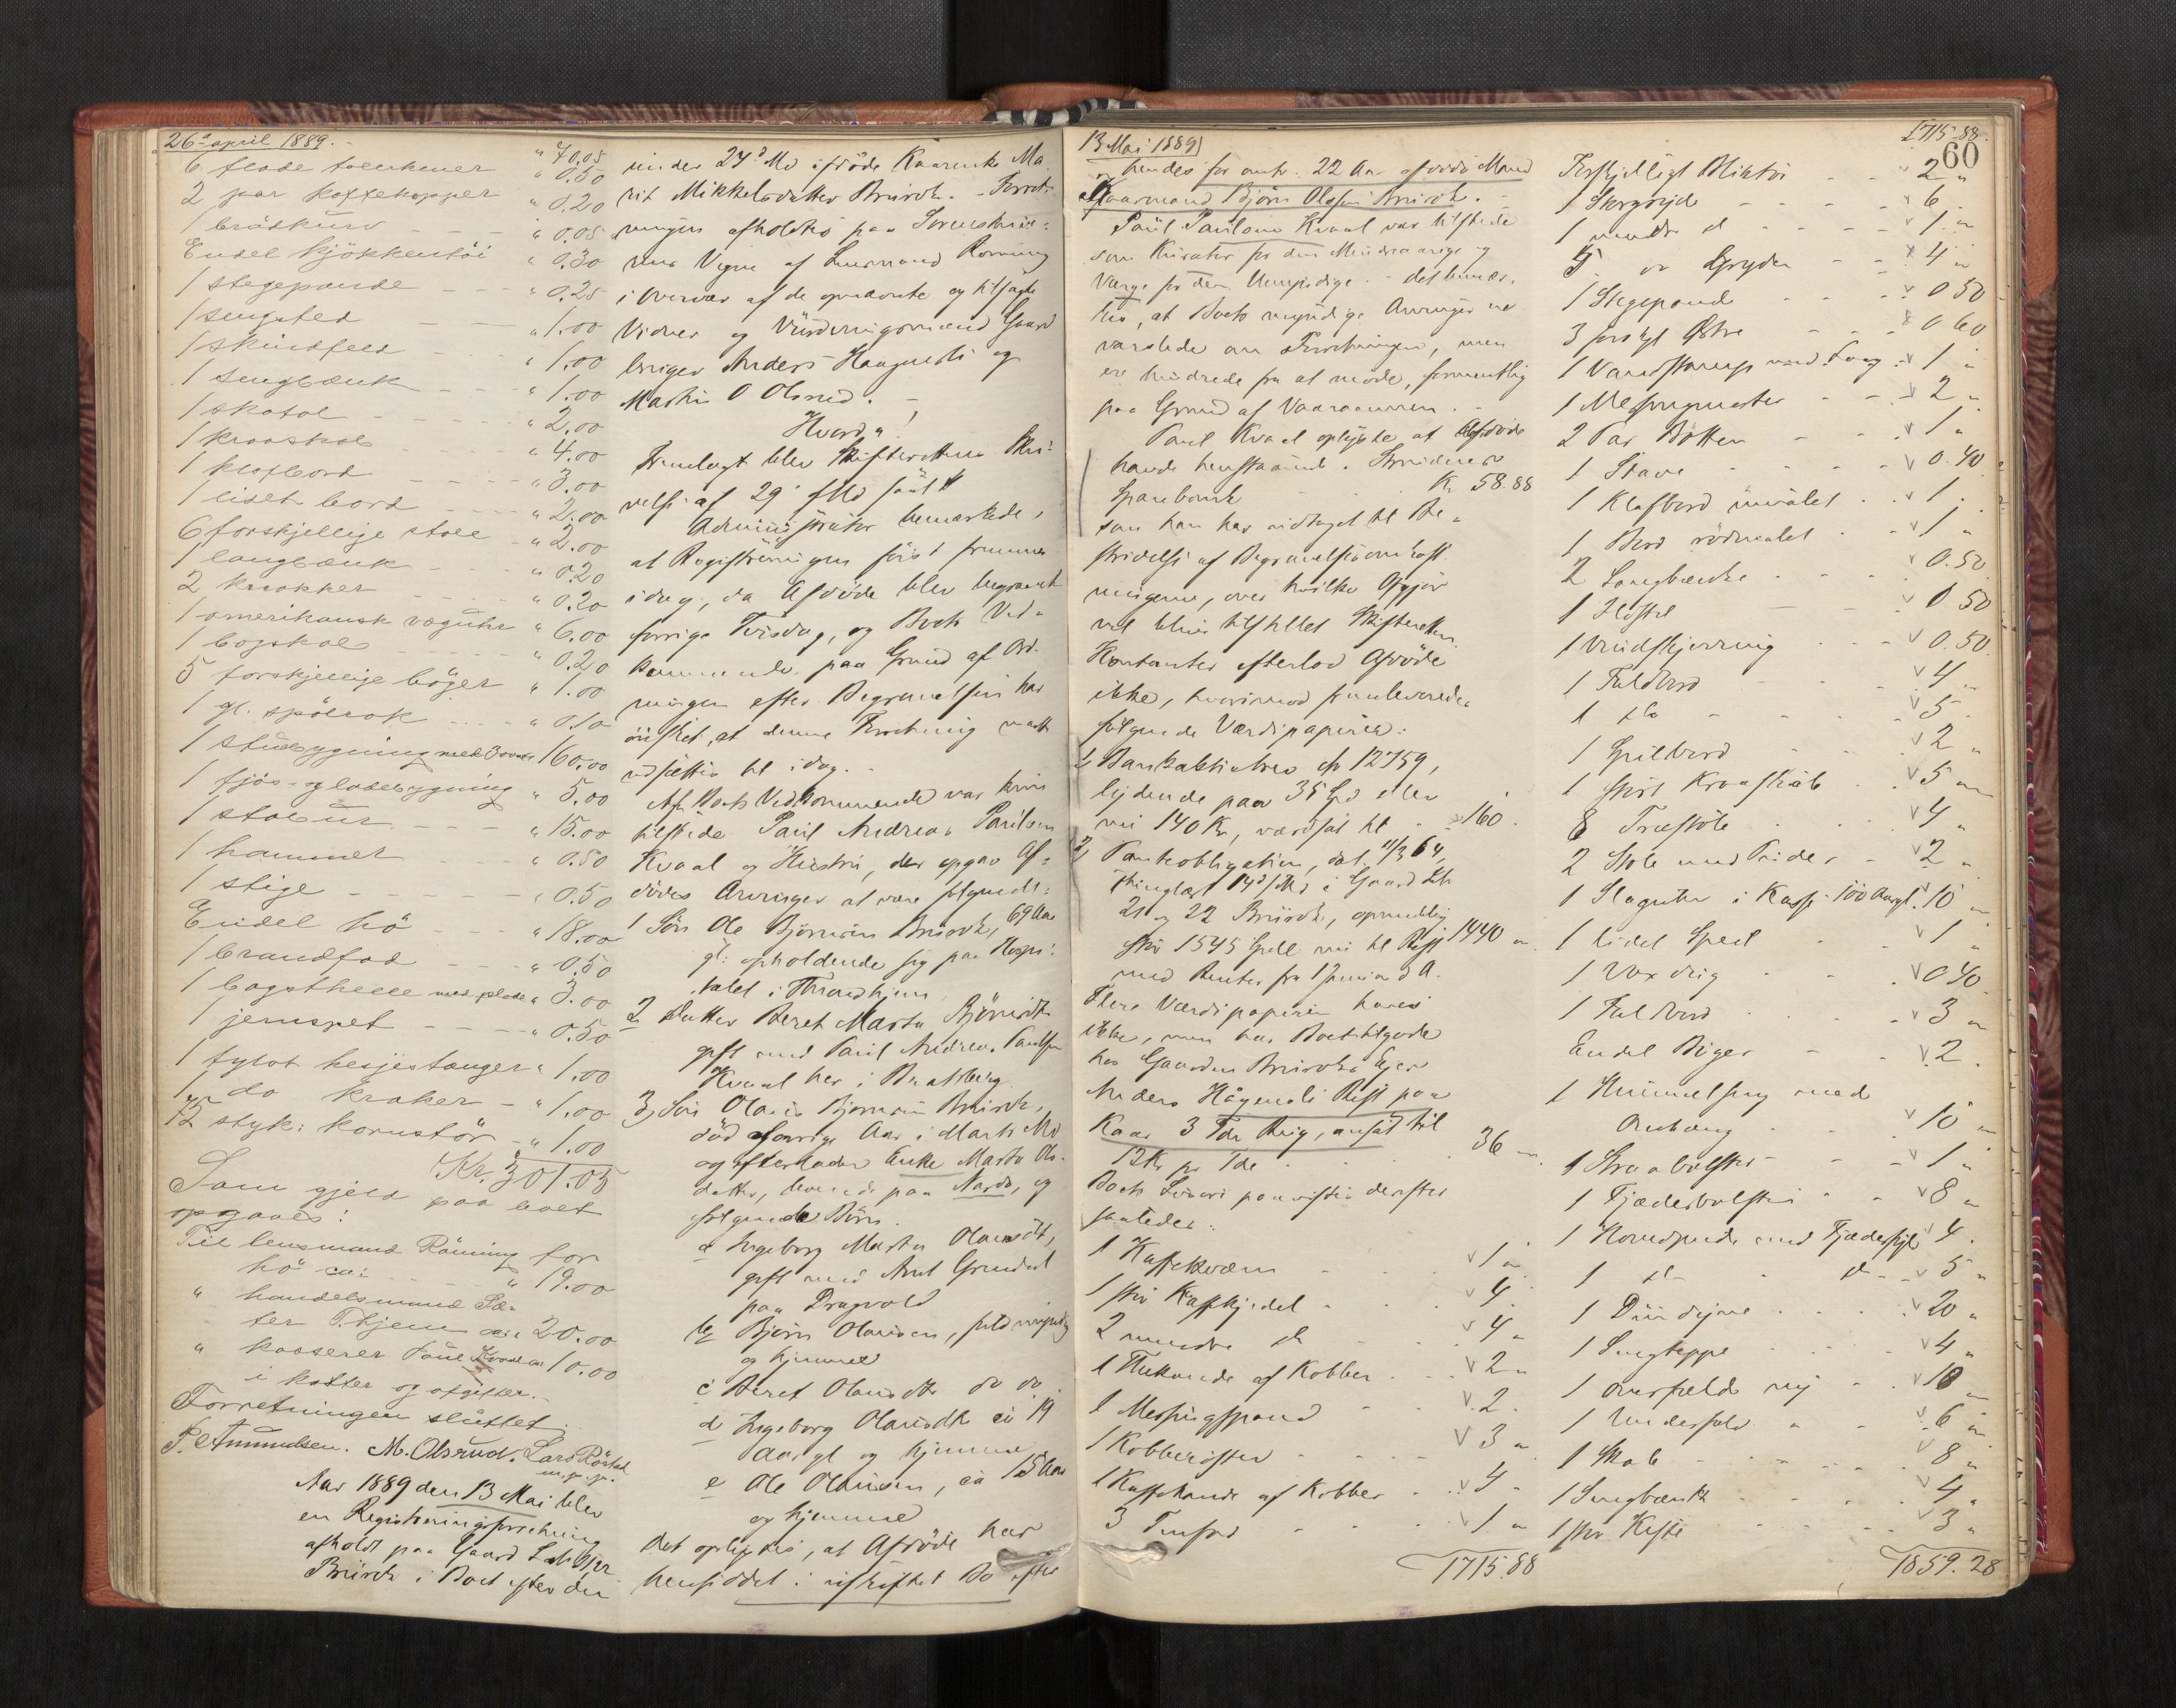 26d april 1889.
" 70.05
6 flade tallerkener " 0.50
2 par kaffekopper " 0.20
1 brödkurv " 0.05
Endel kjökkentöi " 0.30
1 stegepande " 0.25
1 sengsted " 1.00
1 skindfeld " 1.00
1 sengbænk " 1.00
1 skatol " 2.00
1 kroaskab " 4.00
1 klafbord " 3.00
1 lidet bord " 2.00
6 forskjellige stole " 2.00
1 langbænk " 0.20
2 krakker " 0.20
1 amerikansk væguhr " 6.00
1 bogskab " 0.20
5 forskjellige böger " 1.00
1 gl. spölrok " 0.10
1 stuebygning med 3 ovne 160.00
1 fjös- og ladebygning " 5.00
1 stabur " 15.00
1 hammer " 0.50
1 stige " 0.50
Endel hö " 18.00
1 brandfad " 0.50
1 bagsthelle med plade " 3.00
1 jernspet " 0.50
1 tylvt hesjestanger " 1.00
1 do kraker " 1.00
75 styk: kornstör " 1.00
Kr. 301.05
Som gjeld paa boet
opgaves:
Til lensmand Rönning for
hö ca: " 19.00
" handelsmand Sæ-
ter T.hjem ca: 20.00
" kasserer Paul Kvaal ca: 10.00
i skatter og afgifter.
Forretningen sluttet.
P. Amundsen. M. Olsrud. Lars Röstad
m. p. p.
Aar 1889 den 13 Mai blev
en Registreringsforretning
afholdt paa Gaard
Brurok i Boet efter den
under 24d Md afdöde Kaarenke Ma
rit Mikkelsdatter Brurok. Forret-
ningen afholdtes paa Sorenskriv-
rens Vegne af Lensmand Rönning
i Overvær af de opnævnte og tilsagte
Vidner og Vurderingsmænd Gaard
bruger Anders Haagensli og
Martin O Olsrud. -
Hvorda!
Fremlagt blev Skifterettens Skri-
velse af 29 f Md
Administrator bemærkede,
at Registreringen först fremmes
idag, da Afdöde blev begravet
forrige Tirsdag, og Boets Ved-
kommende paa Grund af Ord-
ningen efter Begravelsen har
önsket, at denne Forretning maatte
udsættes til idag.
Af Boets Vedkommende var kun
tilstede Paul Andreas Paulsen
Kvaal og Hustru, der opgav Af-
dödes Arvinger at være fölgende:
1 Sön Ole Björnsen Brurok, 69 Aar
gl: opholdende sig paa Hospi-
talet i Throndhjem
2 Datter Beret Marta Björnsdt
gift med Paul Andreas Paulsen
Kvaal her i Bratsberg.
3, Sön Olaus Bjørnsen Brurok,
död forrige Aar i Marts Md
og efterlader Enke Marta Ols-
datter, levende paa Nardo, og
fölgende Börn.
a Ingeborg Marta Olausdt,
gift med Arnt Grendal
paa Dragvold
b Björn Olausen, fuldmyndig
og hjemme
c Beret Olausdtr do do
d Ingeborg Olausdtr ca 19
Aar gl og hjemme
e Ole Olausen, ca 15 Aar
og hjemme
Det oplystes, at Afdöde har
hensiddet i uskiftet Bo efter
13 Mai 1889
hendes for omtr. 22 Aar afdöde Mand
Gaarmand Björn Olsen Brurok. -
Paul Paulsen Kvaal var tilstede
som Kurator for den Mindreaarige og
Værge for den Umyndige. - Det bemær-
kes, at Boets myndige Arvinger er
varslede om Forretningen, men
ere hindrede fra at möde, formentlig
paa Grund af Vaaraannen. -
Paul Kvaal oplyste at Afdöde
havde henstaaende i Strinden
Sparebank Kr 58.88
som han har udtaget til Be-
stridelse af Begravelsesomkost-
ningerne, over hvilke Opgjør
vil blive tilstillet Skifteretten.
Kontanter efterlod Afdöde
ikke, hvorimod fremleveredes
fölgende Værdipapirer:
1, Bankaktie No 12759,
lydende paa 35 Spd eller
nu 140 Kr, værdsat til 160.
2, Panteobligation, dat. 11/3 64,
thinglæst 14d s M i Gaard Lb
21 og 22 Brurok, oprindelig
stor 1545 Spdl nu til Rest 1440 "
med Renter fra 1 Januar d A.
Flere Værdipapirer haves
ikke, men har Boet tilgode
hos Gaarden Bruroks Eier
Anders Hågensli Rest paa
Kaar 3 Tdr Byg, ansat til
12 Kr pr Tde 36 "
Boets Løsøre paavistes derefter
saaledes:
1 Kaffekværn v 1 "
1 stor Kaffekjedel v 4 "
2 mindre do v 4 "
1 Thekande af Kobber v 2 "
1 Messingspand v 2 "
1 Kobber v 3 "
1 Kaffekande af Kobber v 4 "
3 Tinfad v 1 "
1715.88
1715.88
60
Forskjelligt Bliktöi v 2 "
1 Stor gryde v 6 "
1 mindre do v 1 "
5 Gryder v 4 "
1 Stegepande v 0 50
3 v 0 60
1 v 1 "
1 Messingmorter v 2 "
2 Par Bötter v 1 "
1 v 0.40
1 Klafbord umalet v 1 "
1 Bord rödmalet v 1 "
2 Langbænke v 0.50
1 v 0 50
1 v 0.50
1 Foldbord v 4 "
1 do v 5 "
1 Spilbord v 2 "
1 stort Kroaskab v 5 "
8 Træstole v 4 "
2 Stole med Puder v 2 "
1 Slaguhr i Kasse 100 Aar gl. v 10 "
1 lidet Speil v 1 "
1 v 0 40
1 Foldbord v 3 "
Endel Böger v 2 "
1 Himmelseng med
Omhæng v 10 "
1 Straabolster v 1 "
1 Fjæderbolster v 8 "
1 Hovedpude med Fjæderfyld v 4 "
1 do do v 5 "
1 Dundyne v 20 "
1 Sengteppe v 4 "
1 Overfeld ny v 10 "
1 Underfeld v 6 "
1 Skab v 8 "
1 Sengbænk v 4 "
1 stor Kiste v 3 "
1859.28